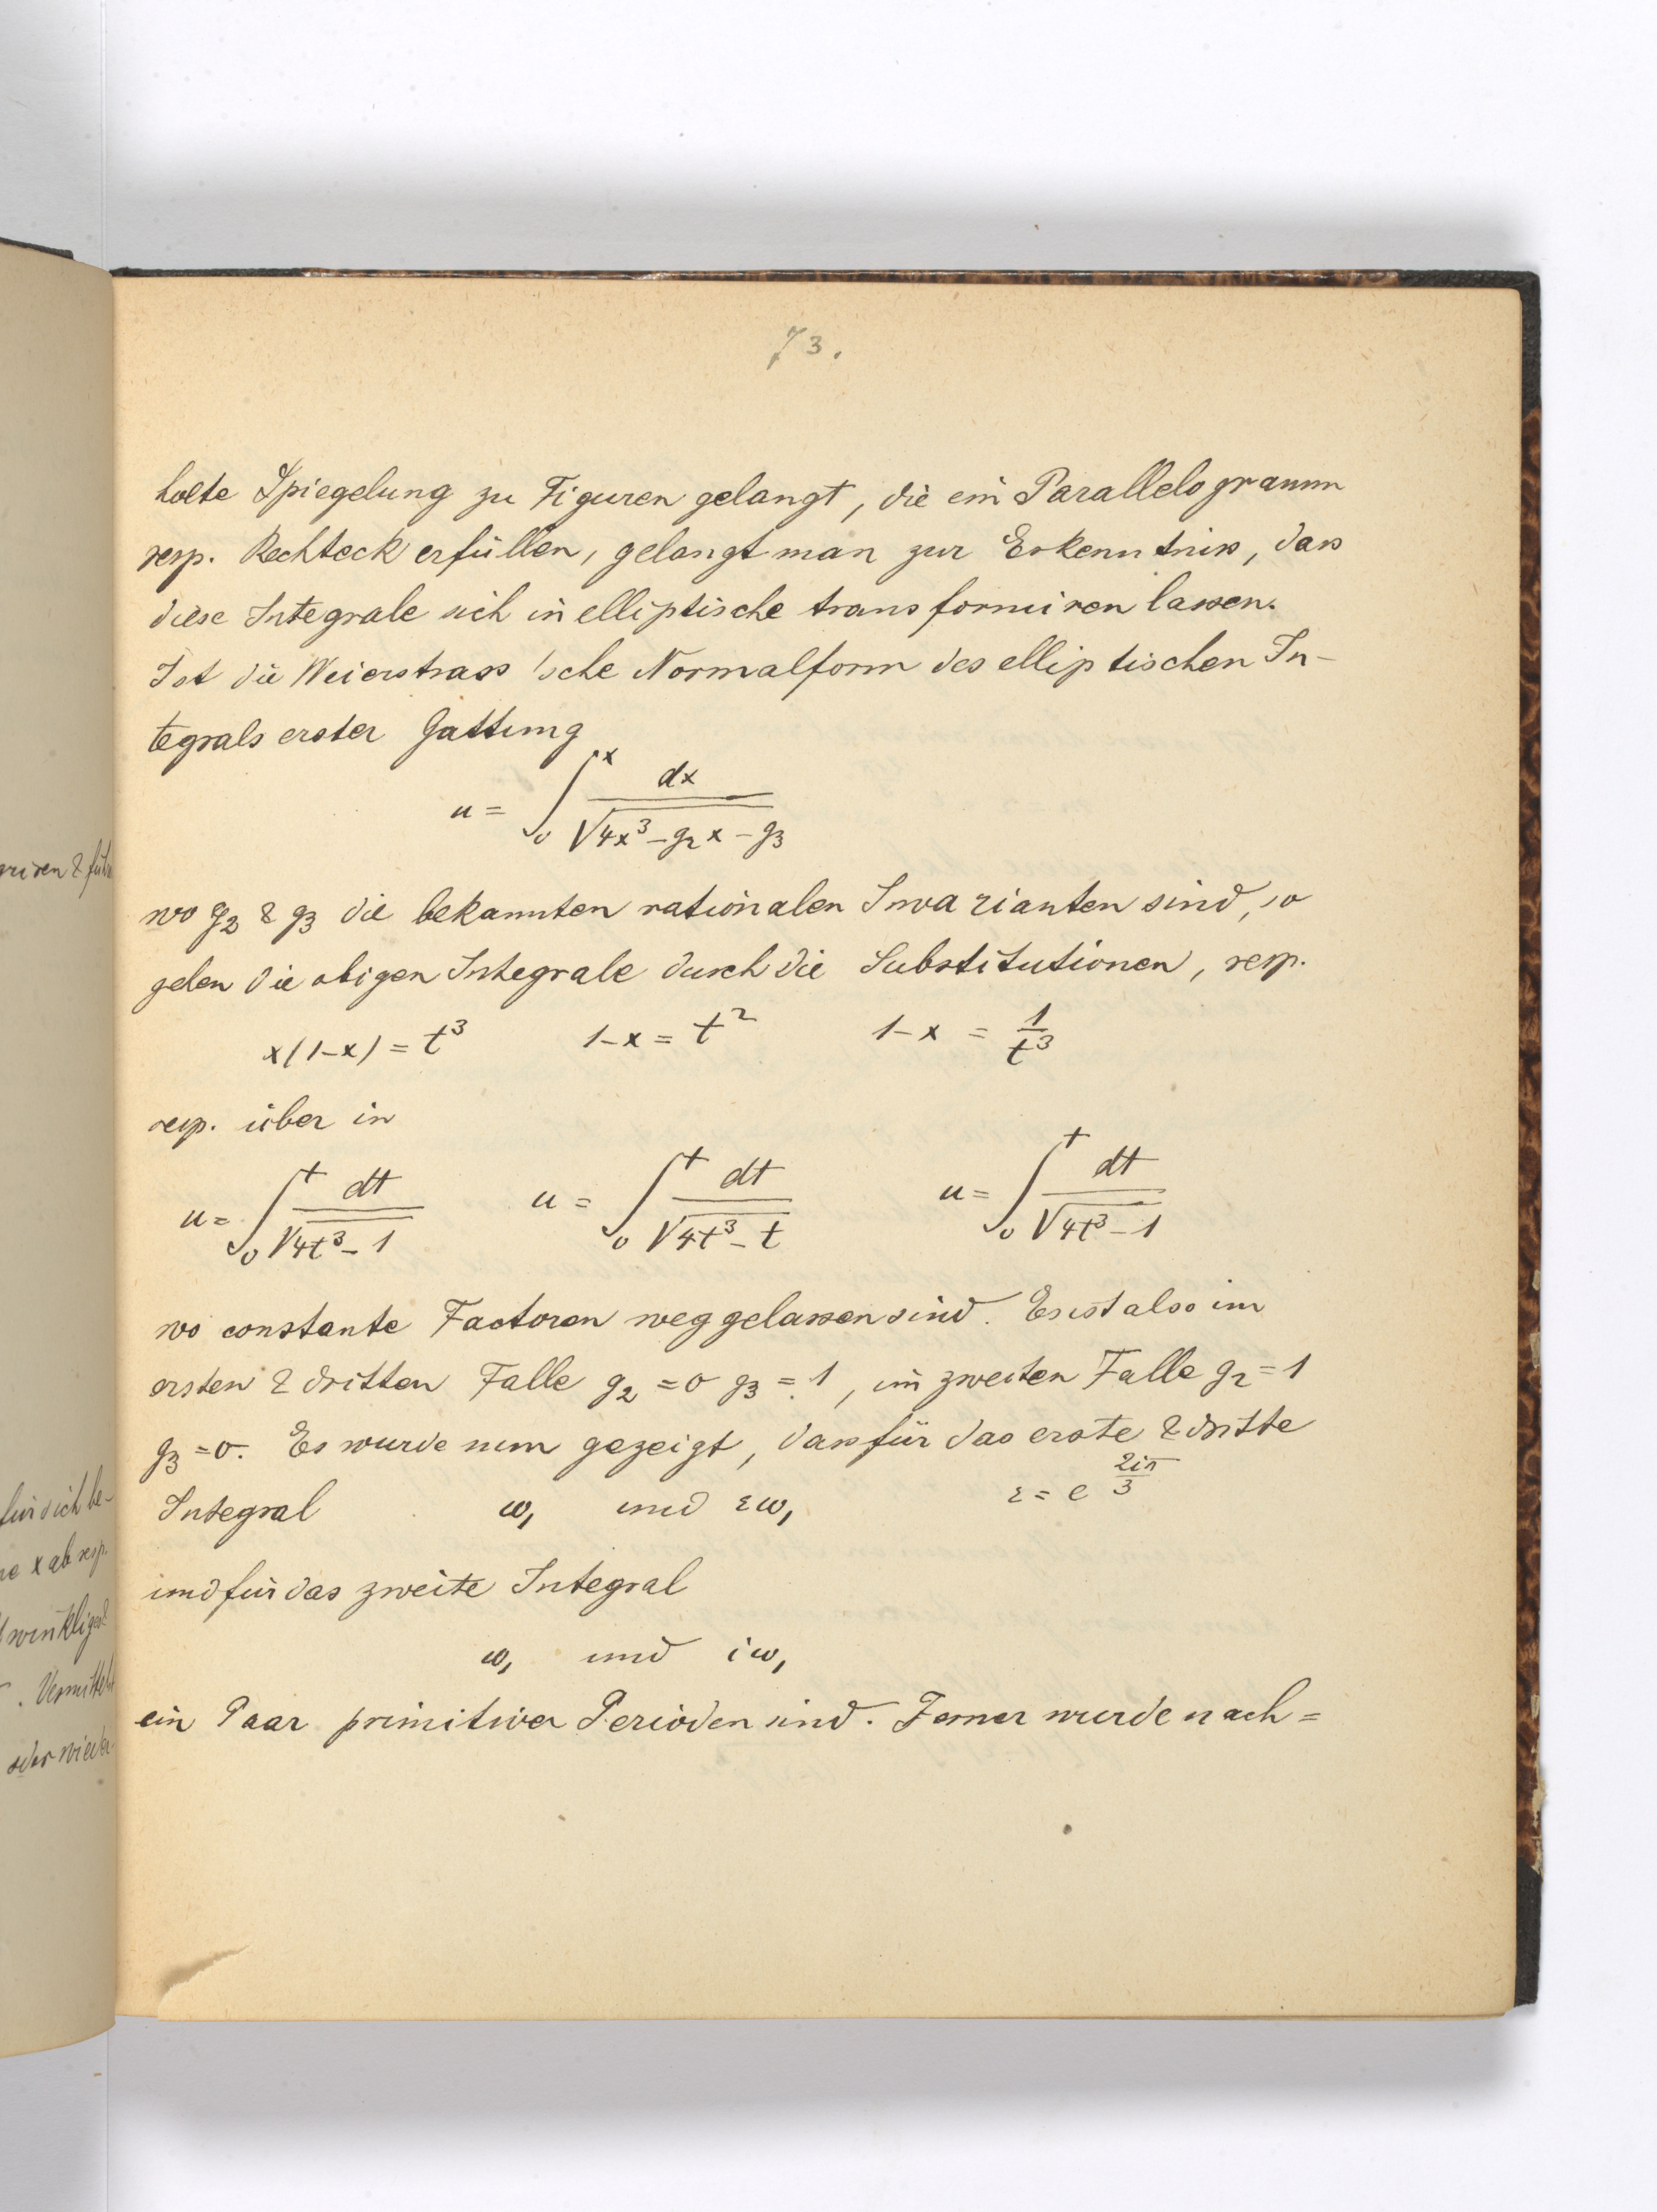 73.
holte Spiegelung zu Figuren gelangt, die ein Parallelogramm
resp. Rechteck erfüllen, gelangt man zur Erkenntniss, dass
diese Integrale sich in elliptische transformiren lassen.
Ist die Weierstrass'sche Normalform des elliptischen In-
tegrals erster Gattung
u = ∫₀ˣ dx / √(4x³ - g₂x - g₃)
wo g₂ & g₃ die bekannten rationalen Invarianten sind, so
gehen die obigen Integrale durch die Substitutionen, resp.
x(1-x) = t³ 1-x = t² 1-x = 1/t³
resp. über in
u = ∫₀ᵗ dt / √(4t³ - 1) u = ∫₀ᵗ dt / √(4t³ - t) u = ∫₀ᵗ dt / √(4t³ - 1)
wo constante Factoren weggelassen sind. Es ist also im
ersten & dritten Falle g₂ = 0 g₃ = 1, im zweiten Falle g₂ = 1
g₃ = 0. Es wurde nun gezeigt, dass für das erste & dritte
Integral ω₁ und εω₁ ε = e^(2iπ/3)
und für das zweite Integral
ω₁ und iω₁
ein Paar primitiver Perioden sind. Ferner wurde nach=
für sich be-
x ab resp.
winklige
. Vermittelst
oder wieder-